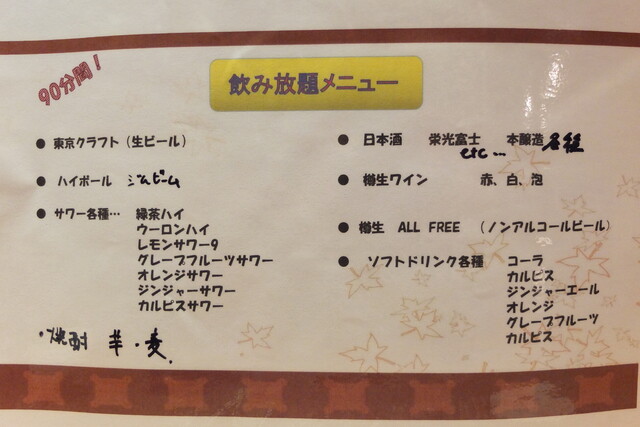 90分間!
飲み放題メニュー
● 東京クラフト(生ビール)
● ハイボール ジムビーム
● サワー各種… 緑茶ハイ
ウーロンハイ
レモンサワー9
グレープフルーツサワー
オレンジサワー
ジンジャーサワー
カルピスサワー
・焼酎 芋・麦
● 日本酒 栄光富士 本醸造
etc…
● 樽生ワイン 赤、白、泡
● 樽生 ALL FREE (ノンアルコールビール)
● ソフトドリンク各種 コーラ
カルピス
ジンジャーエール
オレンジ
グレープフルーツ
カルピス